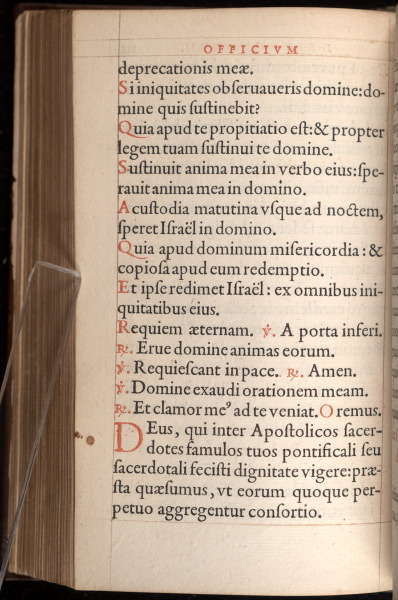 OFFICIVM
deprecationis meæ.
Si iniquitates obſeruaueris domine: do-
mine quis ſuſtinebit?
Quia apud te propitiatio eſt: & propter
legem tuam ſuſtinui te domine.
Suſtinuit anima mea in verbo eius: ſpe-
rauit anima mea in domino.
A cuſtodia matutina vſque ad noctem,
ſperet Iſraël in domino.
Quia apud dominum miſericordia : &
copioſa apud eum redemptio.
Et ipſe redimet Iſraël : ex omnibus ini-
quitatibus eius.
Requiem æternam. ℣. A porta inferi.
℞. Erue domine animas eorum.
℣. Requieſcant in pace. ℞. Amen.
℣. Domine exaudi orationem meam.
℞. Et clamor meꝰ ad te veniat. Oremus.
DEus, qui inter Apoſtolicos ſacer-
dotes famulos tuos pontificali ſeu
ſacerdotali feciſti dignitate vigere: præ-
ſta quæſumus, vt eorum quoque per-
petuo aggregentur conſortio.